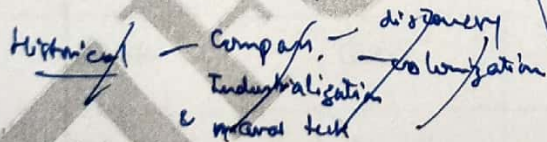 Historical — Compass, — discovery
— colonization
Industrialization
& naval tech